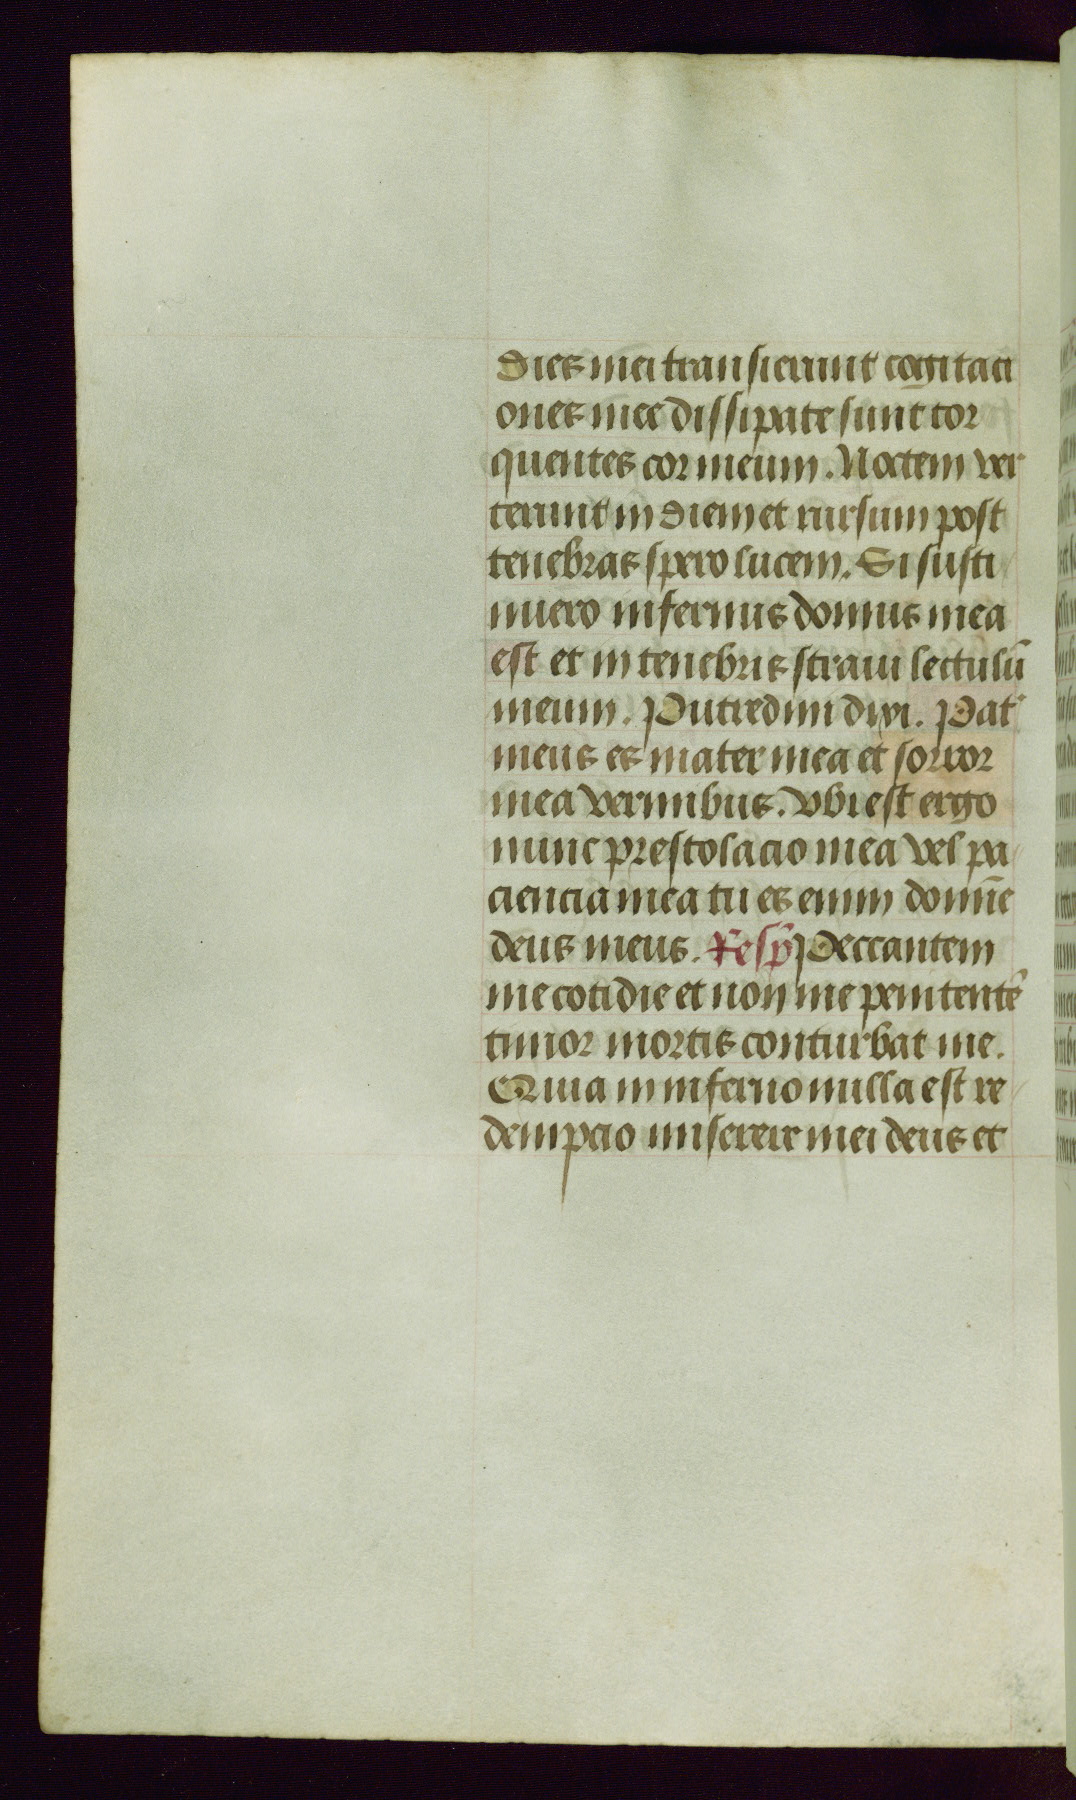 Dies mei transierunt cogitaci
ones mee dissipate sunt tor
quentes cor meum. Noctem ver
terunt in diem et rursum post
tenebras spero lucem. Si susti
nuero infernus domus mea
est et in tenebris straui lectulū
meum. Putredini dixi. Pat᷒
meus es mater mea et sorror
mea vermibus. Vbi est ergo
nunc prestolacio mea vel pa
ciencia mea tu es enim domīe
deus meus. Resp̄ Peccantem
me cotidie et non me penitentē
timor mortis conturbat me.
Quia in inferno nulla est re
dempcio miserere mei deus et